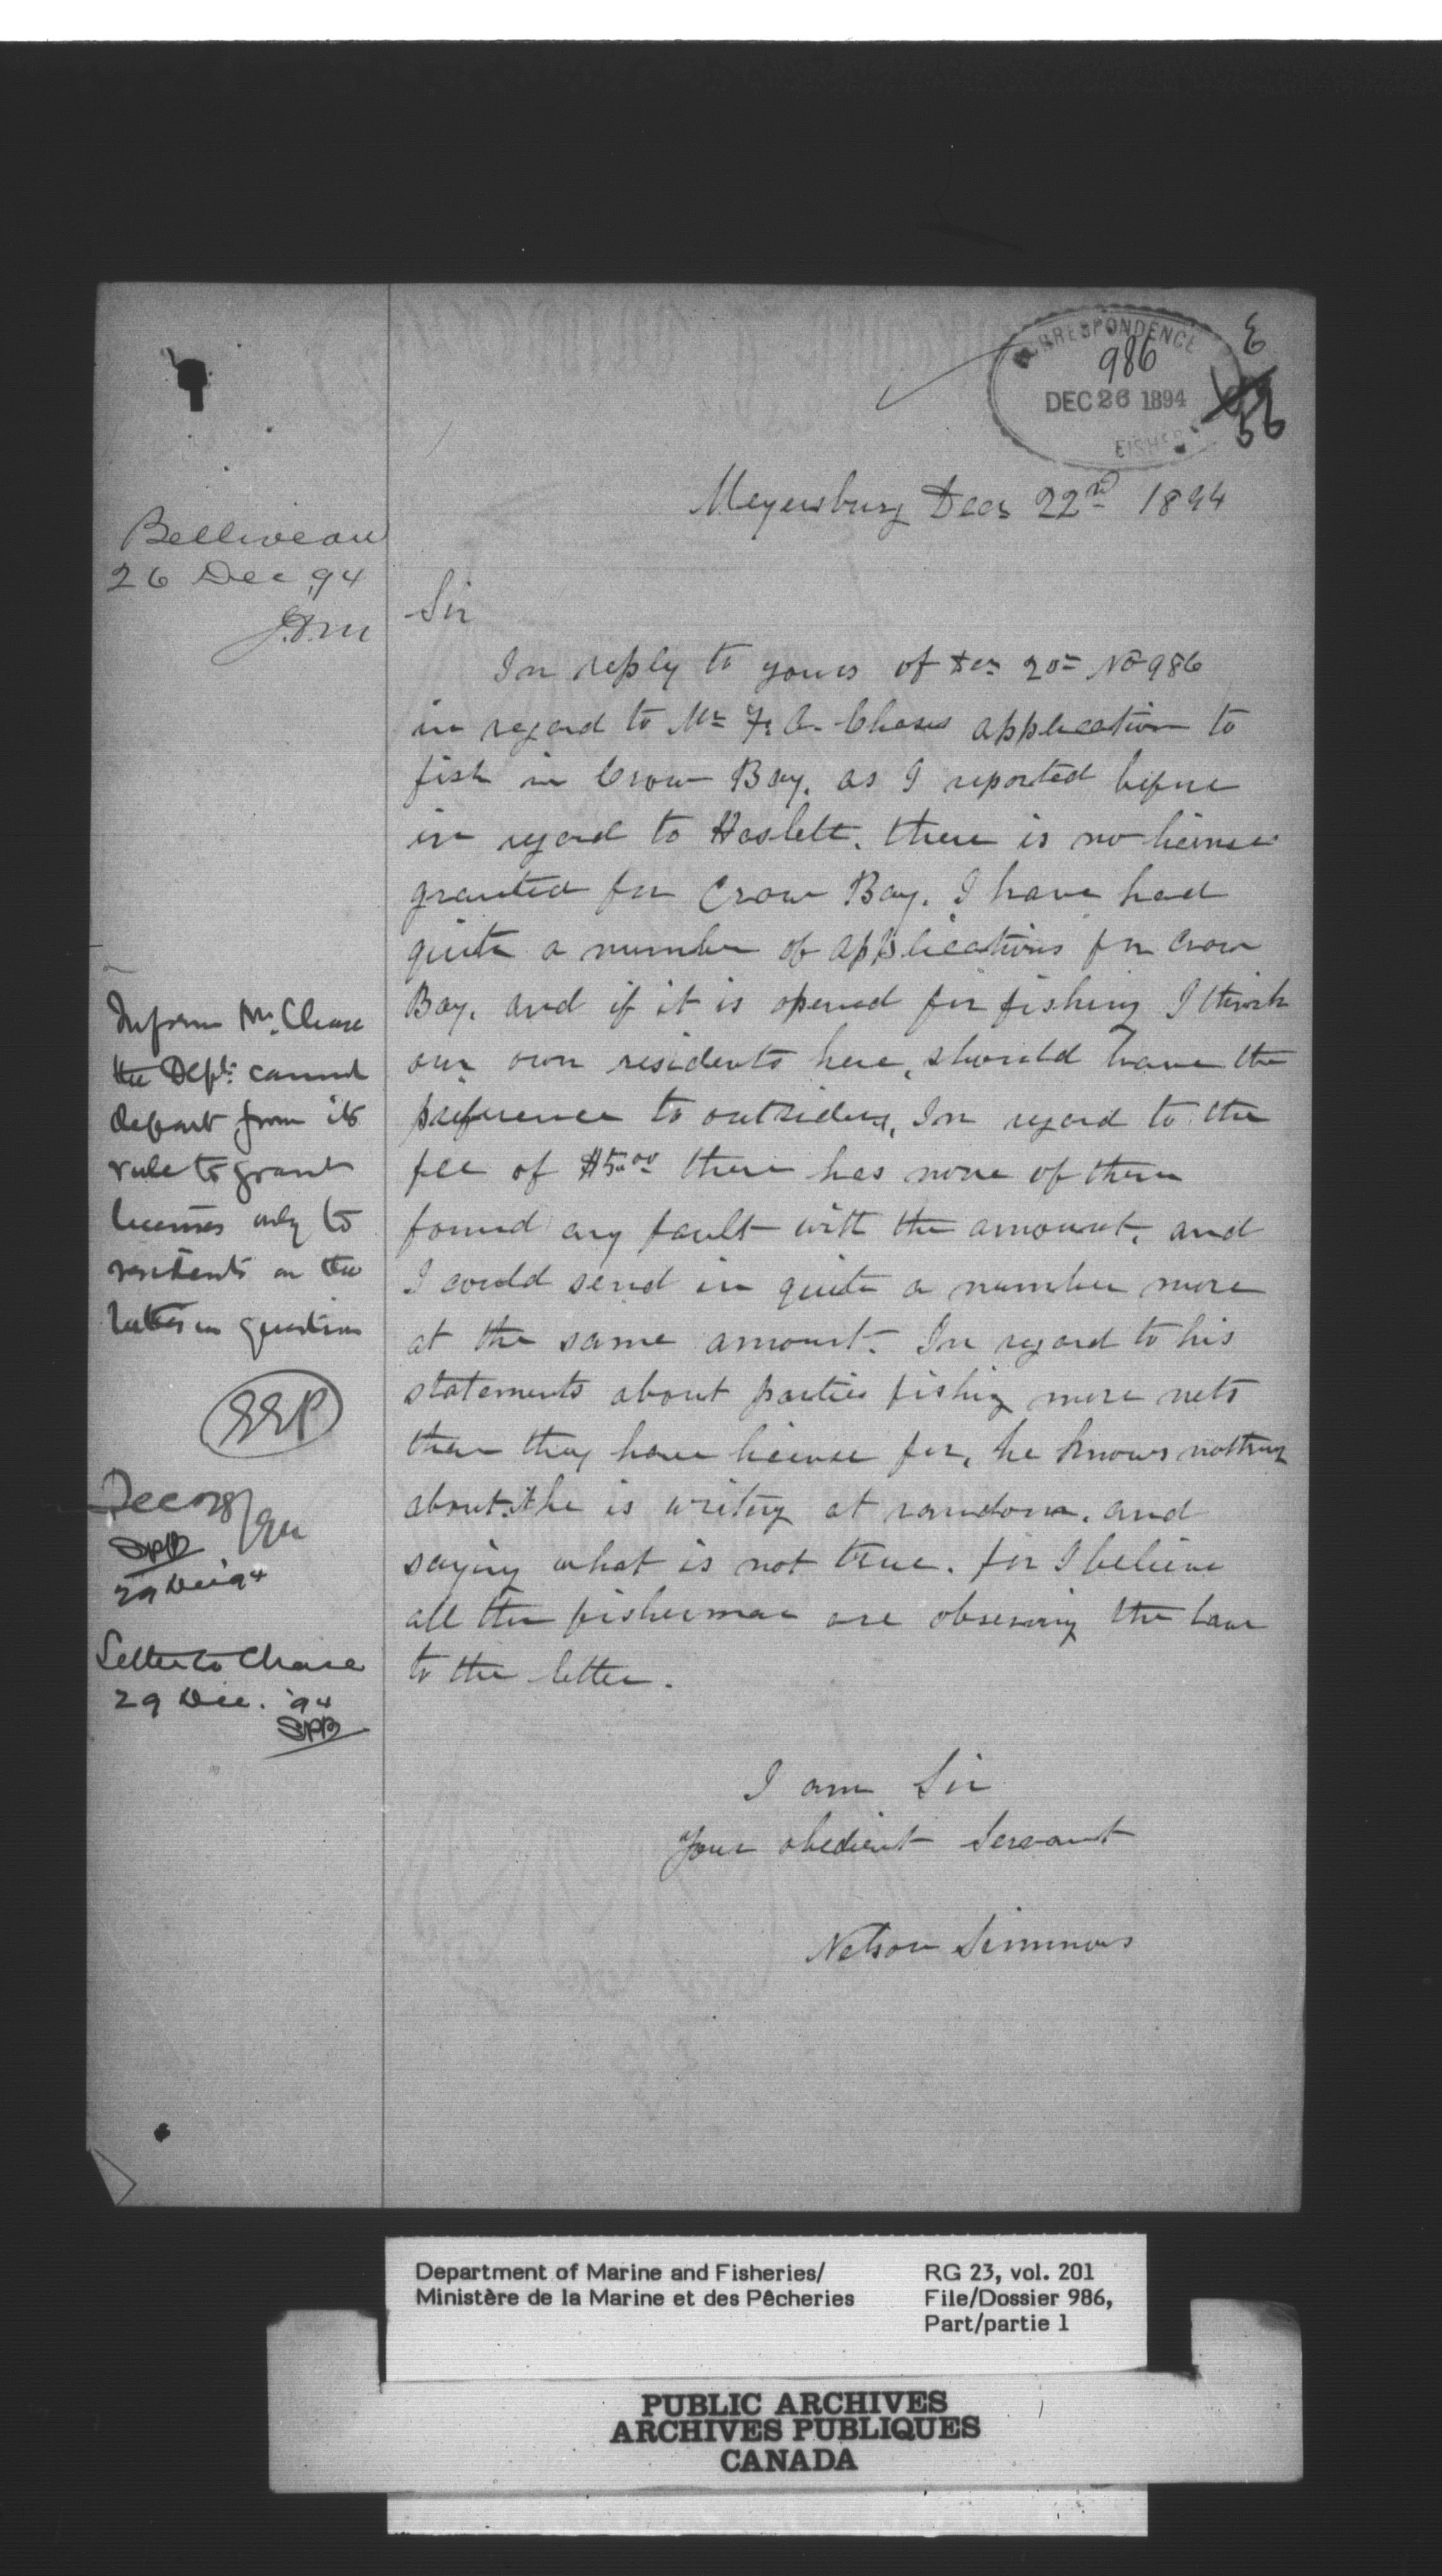 CORRESPONDENCE
986
DEC 26 1894
FISHER
E
56
Meyersburg Decr 22nd 1894
Belliveau
26 Dec 94
J.D.M
Sir
In reply to yours of Dec 20th No 986
in regard to Mr F. A. Chases application to
fish in Crow Bay. as I reported before
in regard to Haslett. there is no license
granted for Crow Bay. I have had
quite a number of applications for Crow
Bay. and if it is opened for fishing I think
our own residents here, should have the
preference to outsiders, In regard to the
fee of $5.00 there has none of them
found any fault with the amount. and
I could send in quite a number more
at the same amount. In regard to his
statements about parties fishing more nets
than they have license for, he knows nothing
about it he is writing at random. and
saying what is not true. for I believe
all the fisherman are observing the law
to the letter.
I am Sir
Your obedient Servant
Nelson Simmons
Inform Mr. Chase
the Dept. cannot
depart from its
rule to grant
licenses only to
residents on the
in question
EEP
Dec 28/94
SPB
29 Dec 94
Letter to Chase
29 Dec. '94
SPB
Department of Marine and Fisheries/
Ministère de la Marine et des Pêcheries
RG 23, vol. 201
File/Dossier 986,
Part/partie 1
PUBLIC ARCHIVES
ARCHIVES PUBLIQUES
CANADA